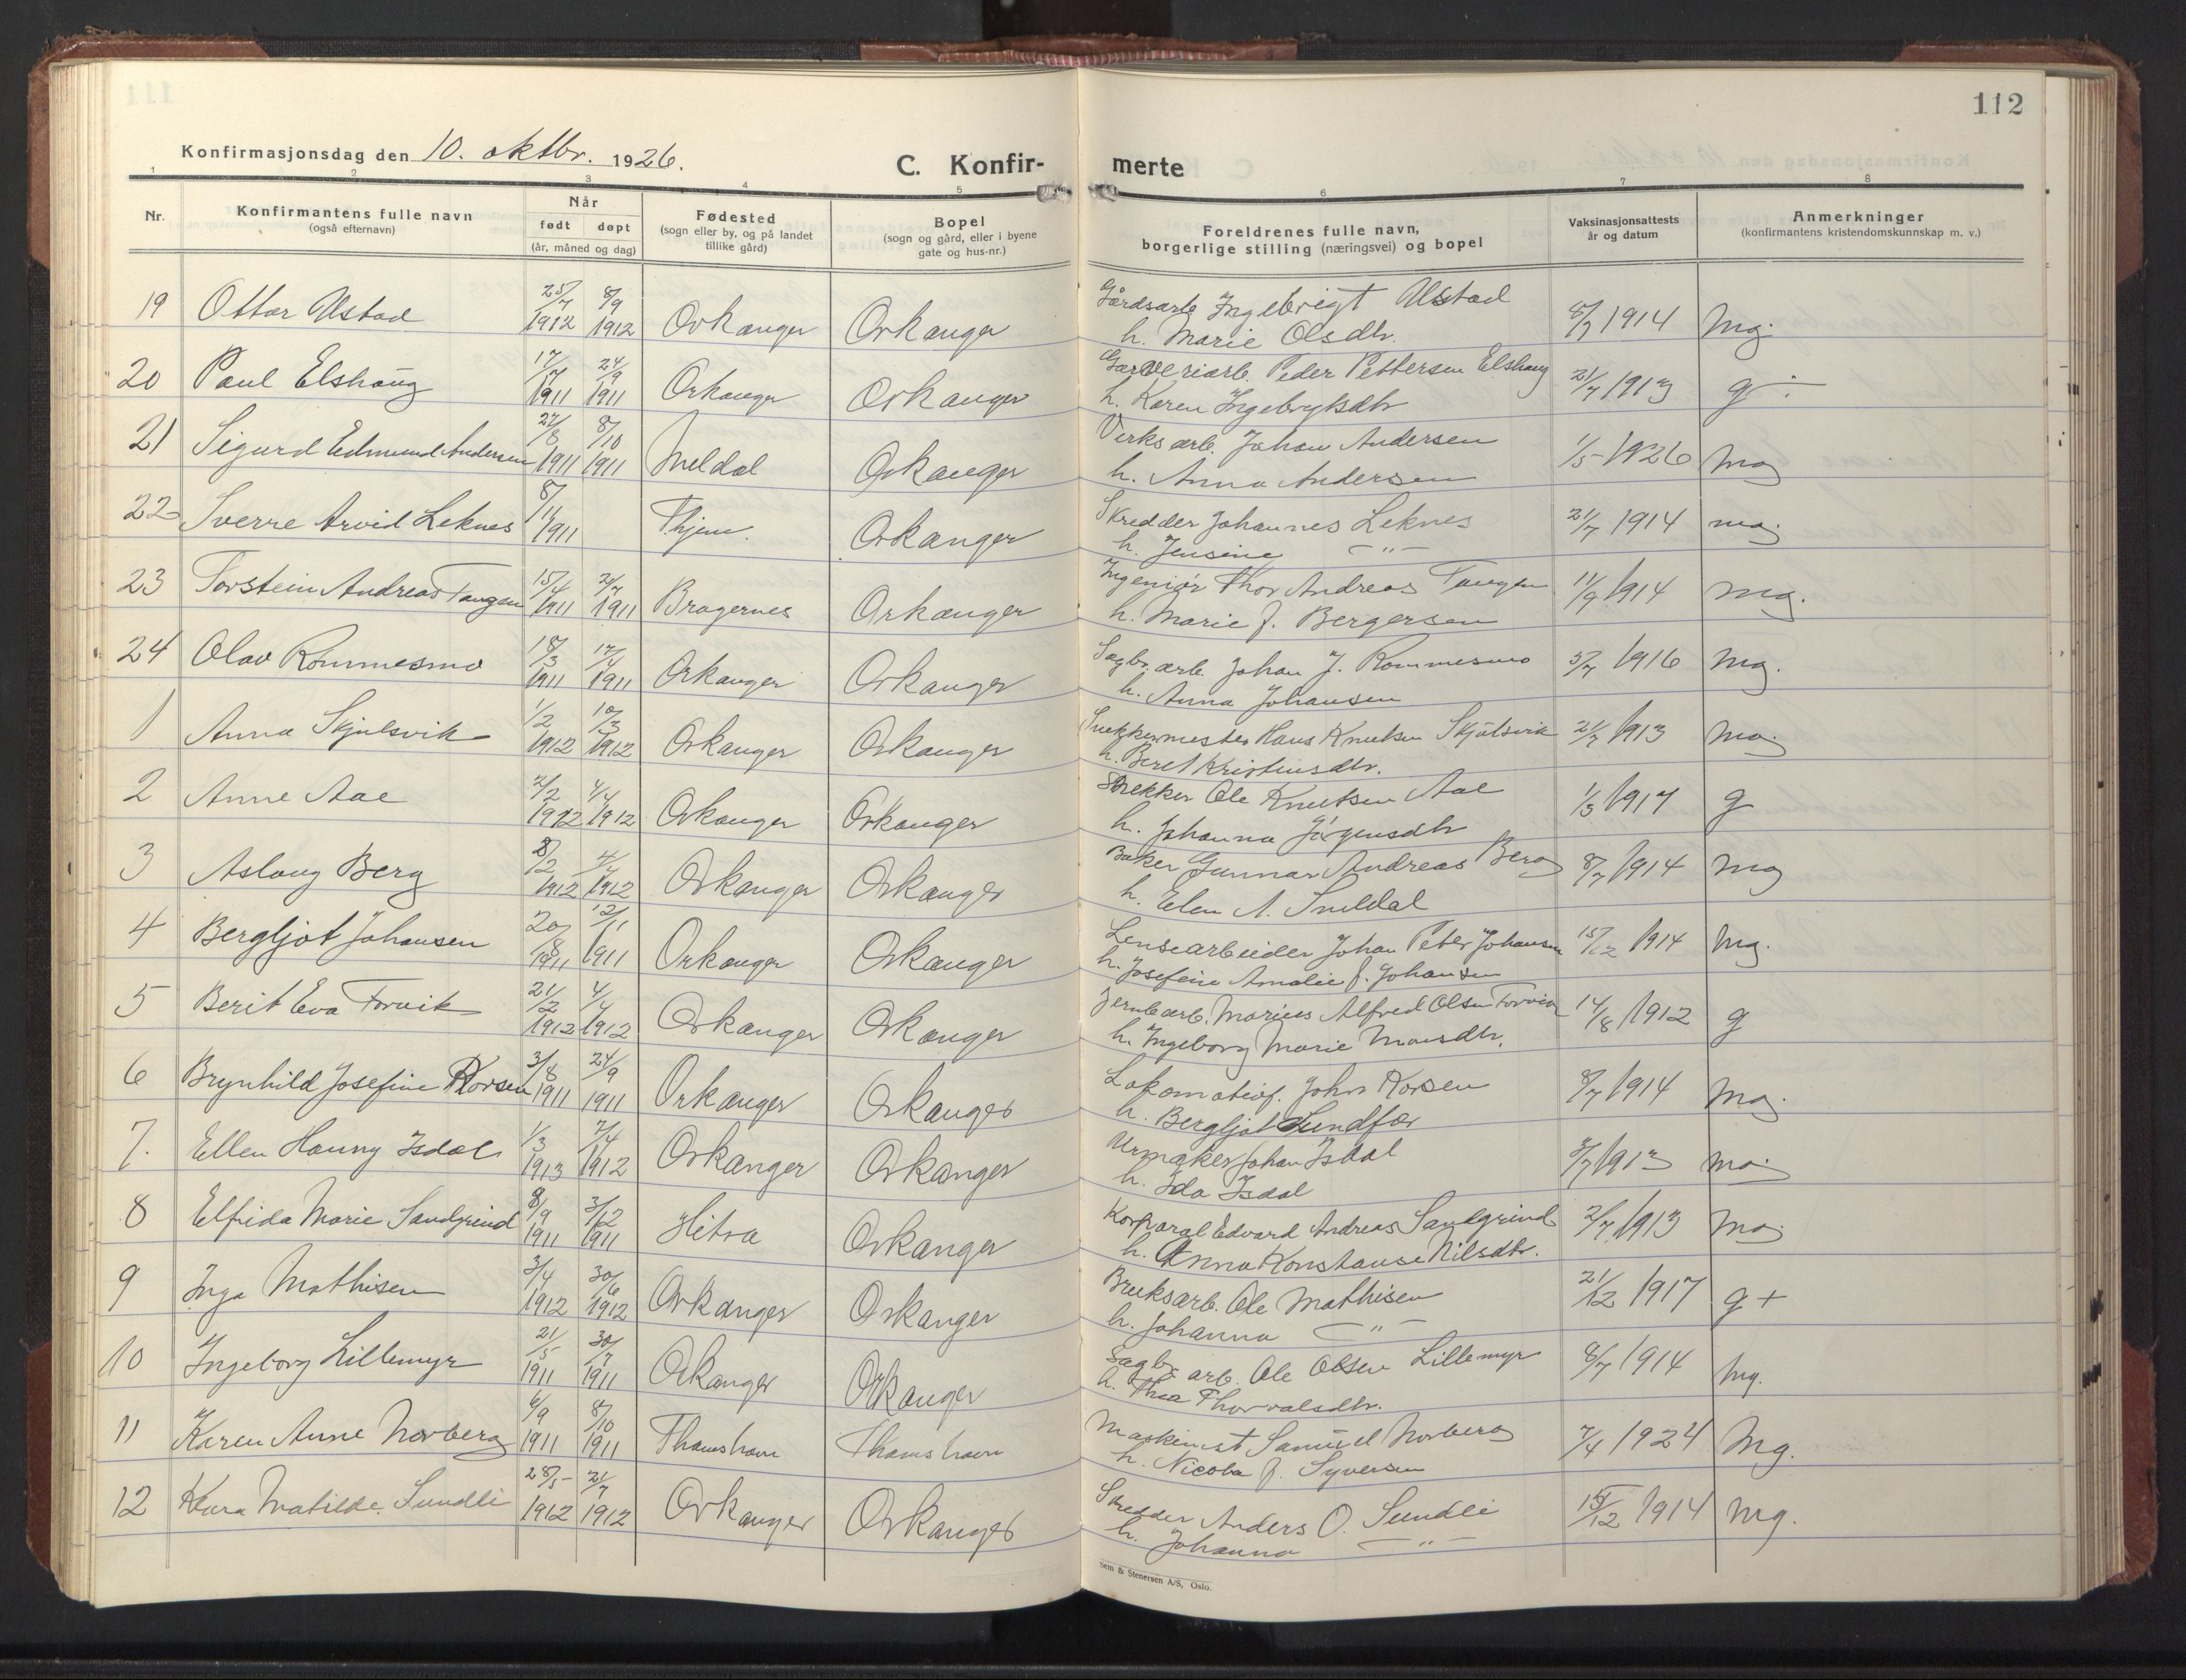 112
Konfirmasjonsdag den 10. oktbr. 1926.
C. Konfir-
merte
1 2 3 4 5 6 7 8
Nr.
Konfirmantens fulle navn
(også efternavn)
Når
født døpt
(år, måned og dag)
Fødested
(sogn eller by, og på landet
tillike gård)
Bopel
(sogn og gård, eller i byene
gate og hus-nr.)
Foreldrenes fulle navn,
borgerlige stilling (næringsvei) og bopel
Vaksinasjonsattests
år og datum
Anmerkninger
(konfirmantens kristendomskunnskap m. v.)
19 Ottar Ulstad 25/7 1912 8/9 1912 Orkanger Orkanger Gårdsarb. Ingebrigt Ulstad 8/7 1914 Mg.
h. Marie Olsdtr.
20 Paul Elshaug 17/7 1911 24/9 1911 Orkanger Orkanger Garveriarb. Peder Pettersen Elshaug 21/7 1913 g ÷
h. Karen Ingebrigtsdtr
21 Sigurd Edmund Andersen 27/8 1911 8/10 1911 Meldal Orkanger Verksarb. Johan Andersen 1/5 1926 Mg
h. Anna Andersen
22 Sverre Arvid Leknes 8/11 1911 Orkanger Skredder Johannes Leknes 21/7 1914 mg.
h. Jensine —"—
23 Torstein Andreas Tangen 15/4 1911 1911 Bragernes Orkanger Ingeniør Thor Andreas Tangen 11/9 1914 mg.
h. Marie f. Bergersen
24 Olav Rommesmo 18/3 1911 17/4 1911 Orkanger Orkanger Sagbr. arb. Johan J. Rommesmo 5/7 1916 Mg.
h. Anna Johansen
1 Anna Skjulsvik 1/2 1912 10/3 1912 Orkanger Orkanger Snekkermester Hans Knutsen Skjølsvik 21/7 1913 Mg
h. Beret Kristinsdtr.
2 Anne Aae 2/2 1912 4/4 1912 Orkanger Orkanger Snekker Ole Knutsen Aae 1/3 1917 g
h. Johanna Jørgensdtr
3 Aslaug Berg 8/2 1912 4/4 1912 Orkanger Orkanger Baker Gunnar Andreas Berg 8/7 1914 Mg
h. Elen A. Snildal
4 Bergljot Johansen 20/8 1911 12/11 1911 Orkanger Orkanger Lensearbeider Johan Peter Johansen 15/12 1914 Mg.
h. Josefine Amalie f. Johansen
5 Berit Eva Torvik 21/2 1912 4/4 1912 Orkanger Orkanger Jernbarb. Marius Alfred Olsen Torvik 14/8 1912 g
h. Ingeborg Marie Monsdtr.
6 Brynhild Josefine Korsen 3/8 1911 24/9 1911 Orkanger Orkanger Lokomotivf. John Korsen 8/7 1914 Mg.
h. Bergljot Sundfær
7. Ellen Hanny Isdal 1/3 1913 7/4 1912 Orkanger Orkanger Urmaker Johan Isdal 8/7 1913 mg
h. Ida Isdal
8 Elfrida Marie Sandgrind 8/9 1911 3/12 1911 Hitra Orkanger Korporal Edvard Andreas Sandgrind 2/7 1913 Mg
h. Anna Konstanse Nilsdtr.
9 Inga Mathisen 3/4 1912 30/6 1912 Orkanger Orkanger Bruksarb. Ole Mathisen 21/12 1917 g +
h. Johanna —"—
10 Ingeborg Lillemyr 21/5 1911 30/7 1911 Orkanger Orkanger Sagbr. arb. Ole Olsen Lillemyr 8/7 1914 Mg.
h. Thea Thorvalsdtr.
11 Karen Anne Norberg 6/9 1911 8/10 1911 Thamshavn Thamshavn Maskinist Samuel Norberg 7/4 1924 Mg.
h. Nicoba f. Syversen
12 Klara Matilde Sundli 28/5 1912 21/7 1912 Orkanger Orkanger Skredder Anders O. Sundli 15/12 1914 Mg.
h. Johanna —"—
Sem & Stenersen A/S, Oslo.